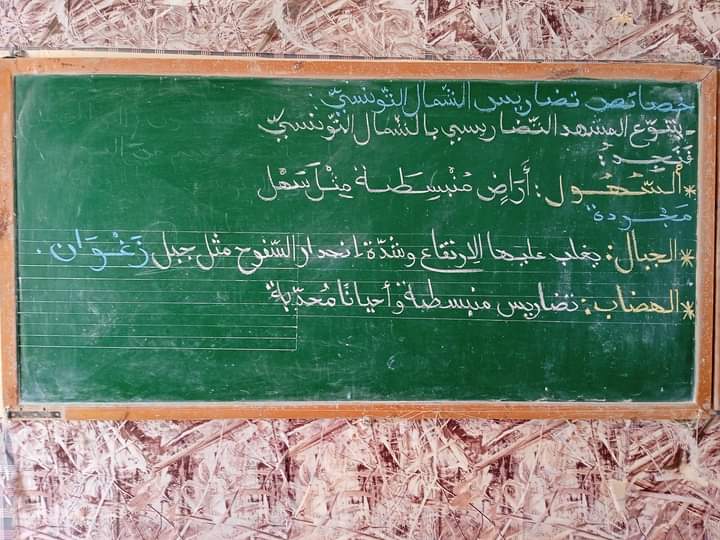 خصائص تضاريس الشمال التونسيّ:
- يتنوّع المشهد التّضاريسي بالشمال التونسيّ
فنجد:
* السّهُول: أَرَاضٍ مُنْبَسِطَة مِثْلَ سَهْل
مَجْردة
* الجبال: يغلب عليها الارتفاع وشدّة انحدار السّفوح مثل جبل زَغْوَان.
* الهضاب: تضاريس منبسطة وأحيانًا مُحدّبة